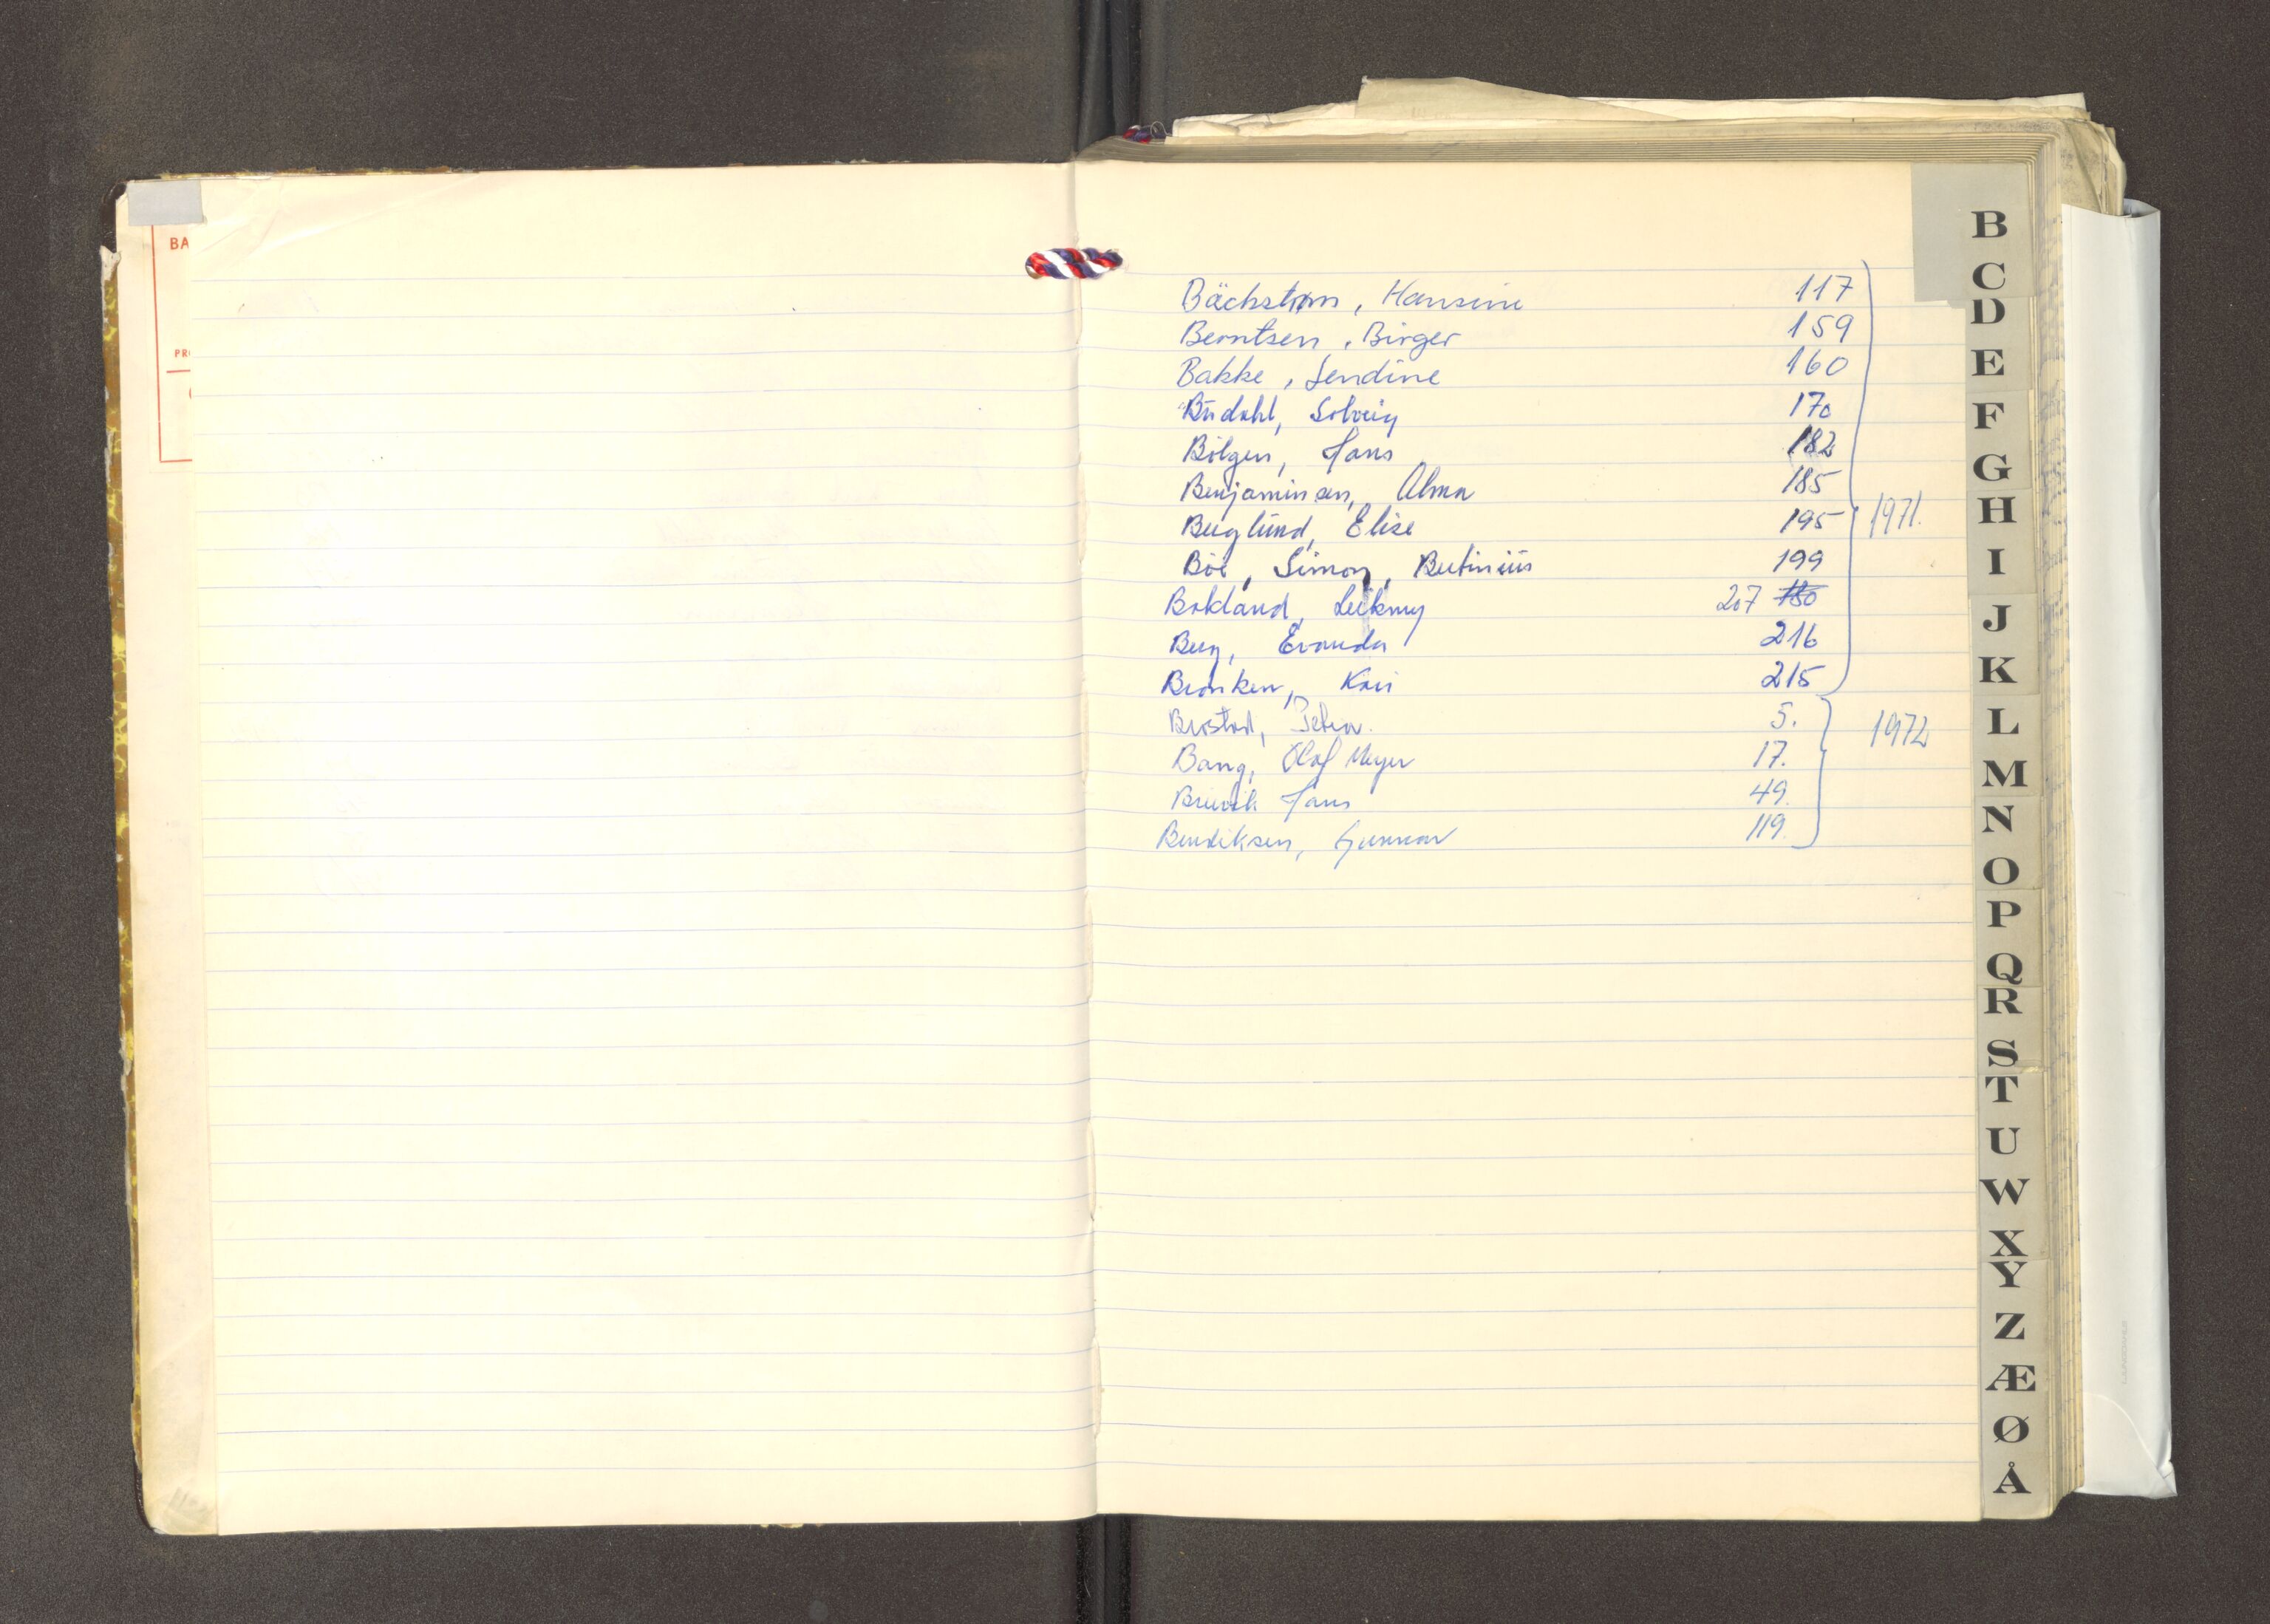 BA
PR
Bäckstrøm, Hansine 117
Berntsen, Birger 159
Bakke, Sendine 160
Budahl, Solveig 170
Bölgen, Hans 182
Benjaminsen, Alma 185
Berglund, Elise 195
1971.
Böe, Simon, Bertinius 199
Bokland, 207 150
Berg, Evanda 216
Bronken, Kari 215
Brostad, Petra. 5.
1972
Bang, Olaf Meyer 17.
Breivik Hans 49.
Bendiksen, Gunnar 119.
B
C
D
E
F
G
H
I
J
K
L
M
N
O
P
Q
R
S
T
U
W
X
Y
Z
Æ
Ø
Å